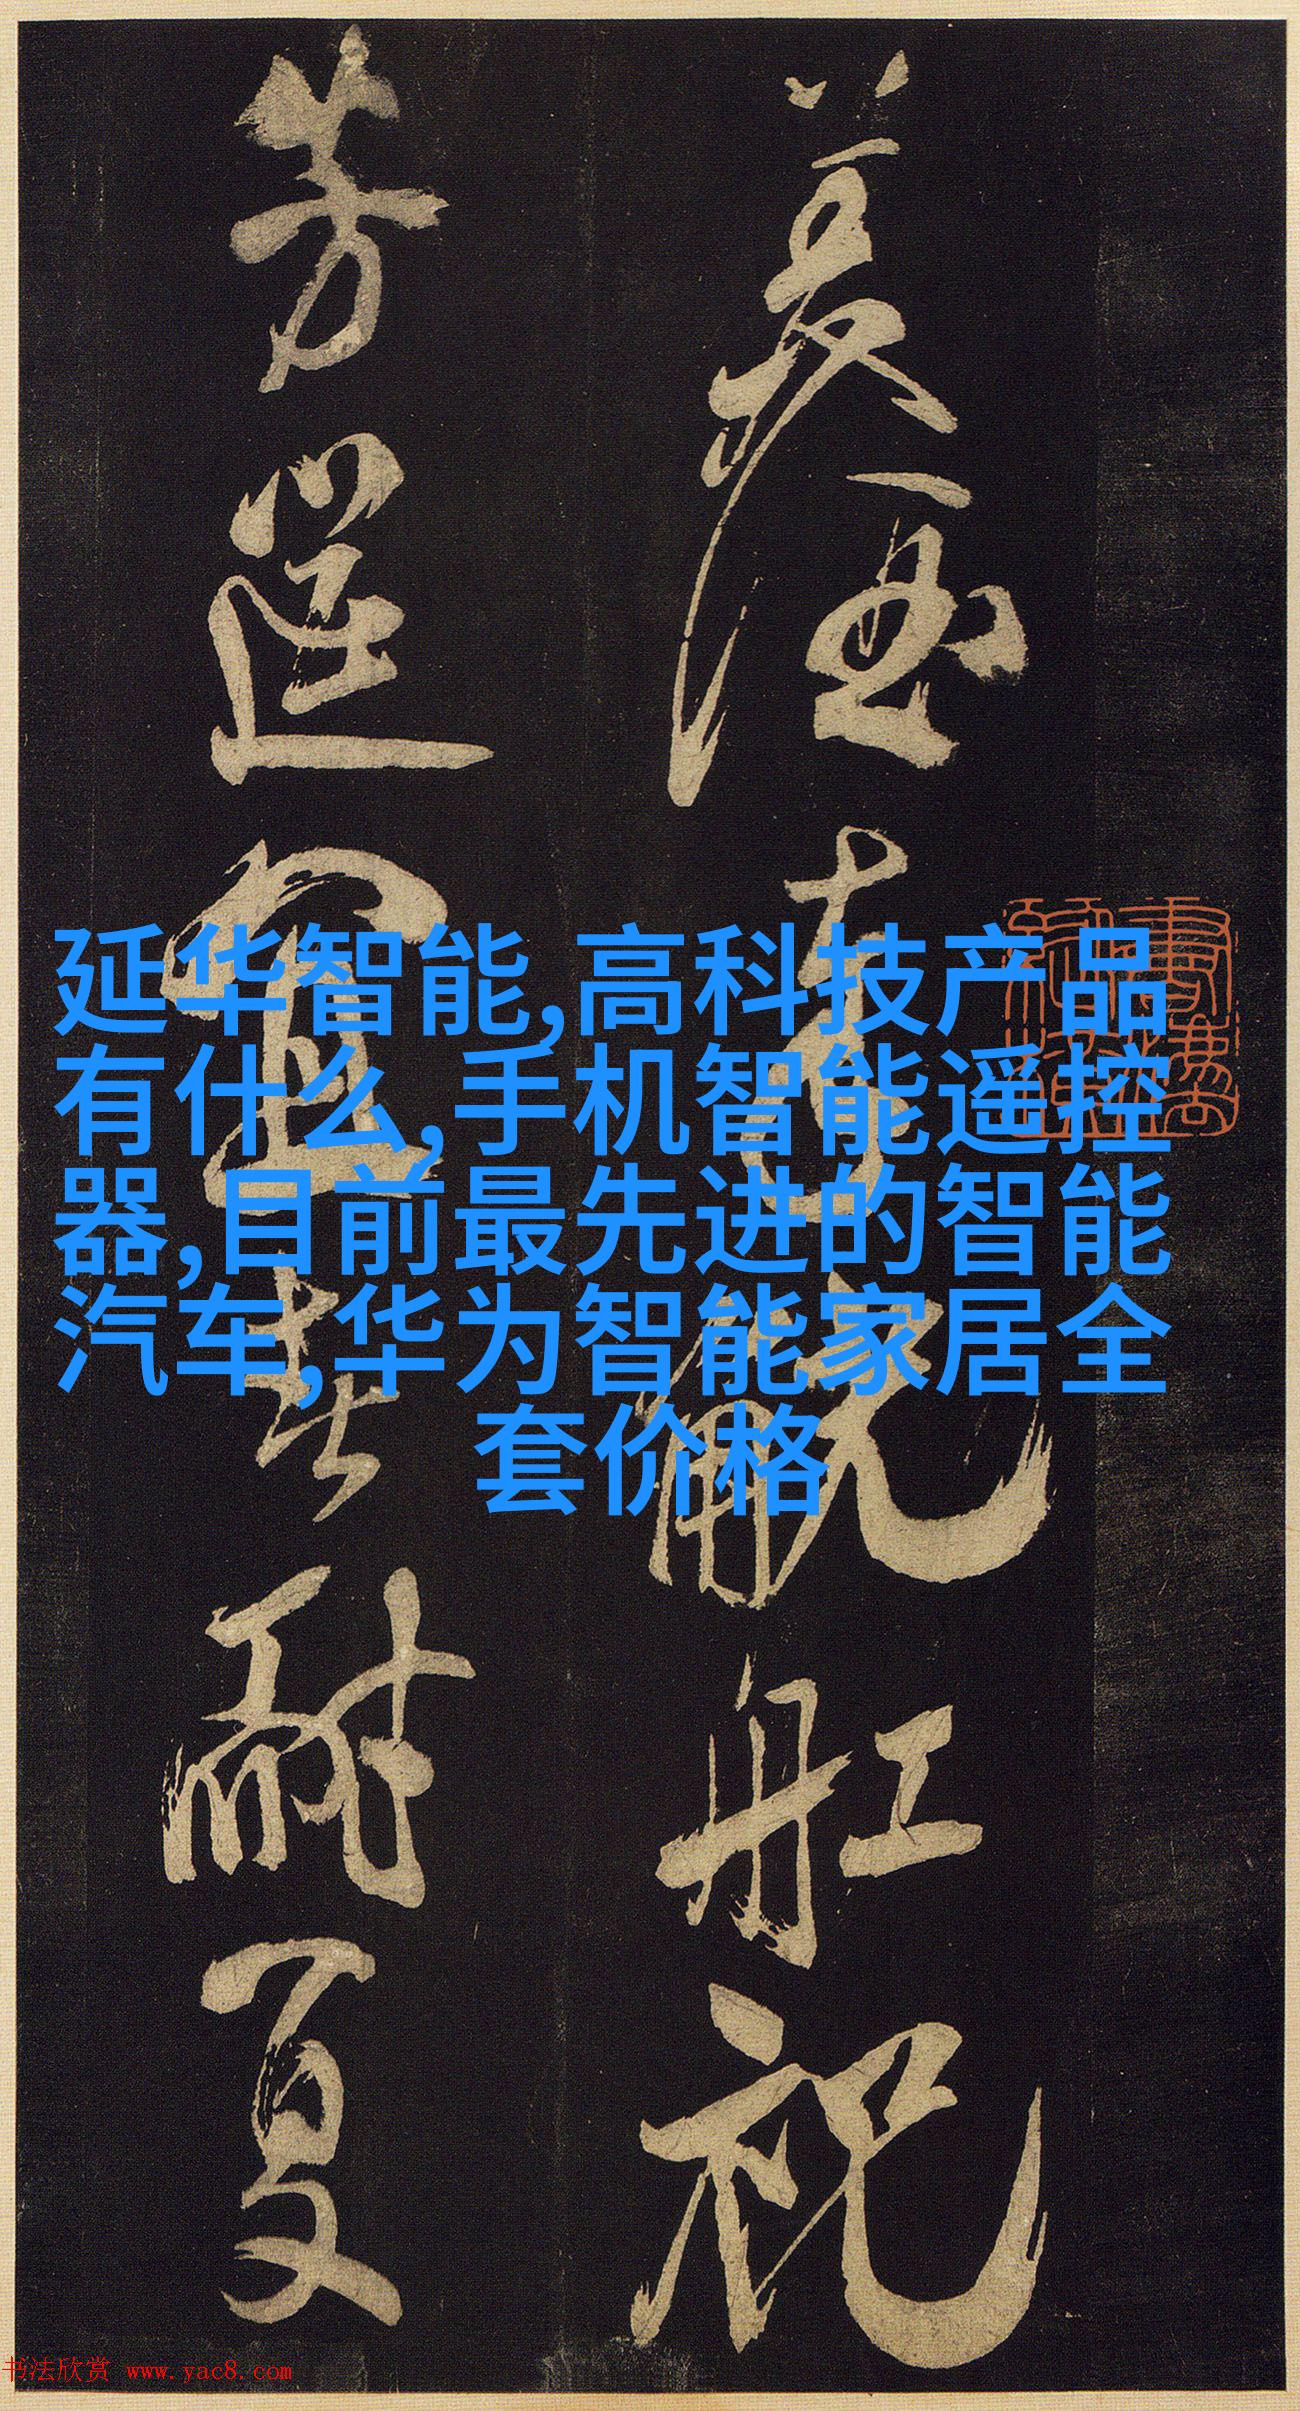 觥船祝
芳宜春耐夏
延华智能,高科技产品
有什么,手机智能遥控
器,目前最先进的智能
汽车,华为智能家居全
套价格
书法欣赏 www.yac8.com